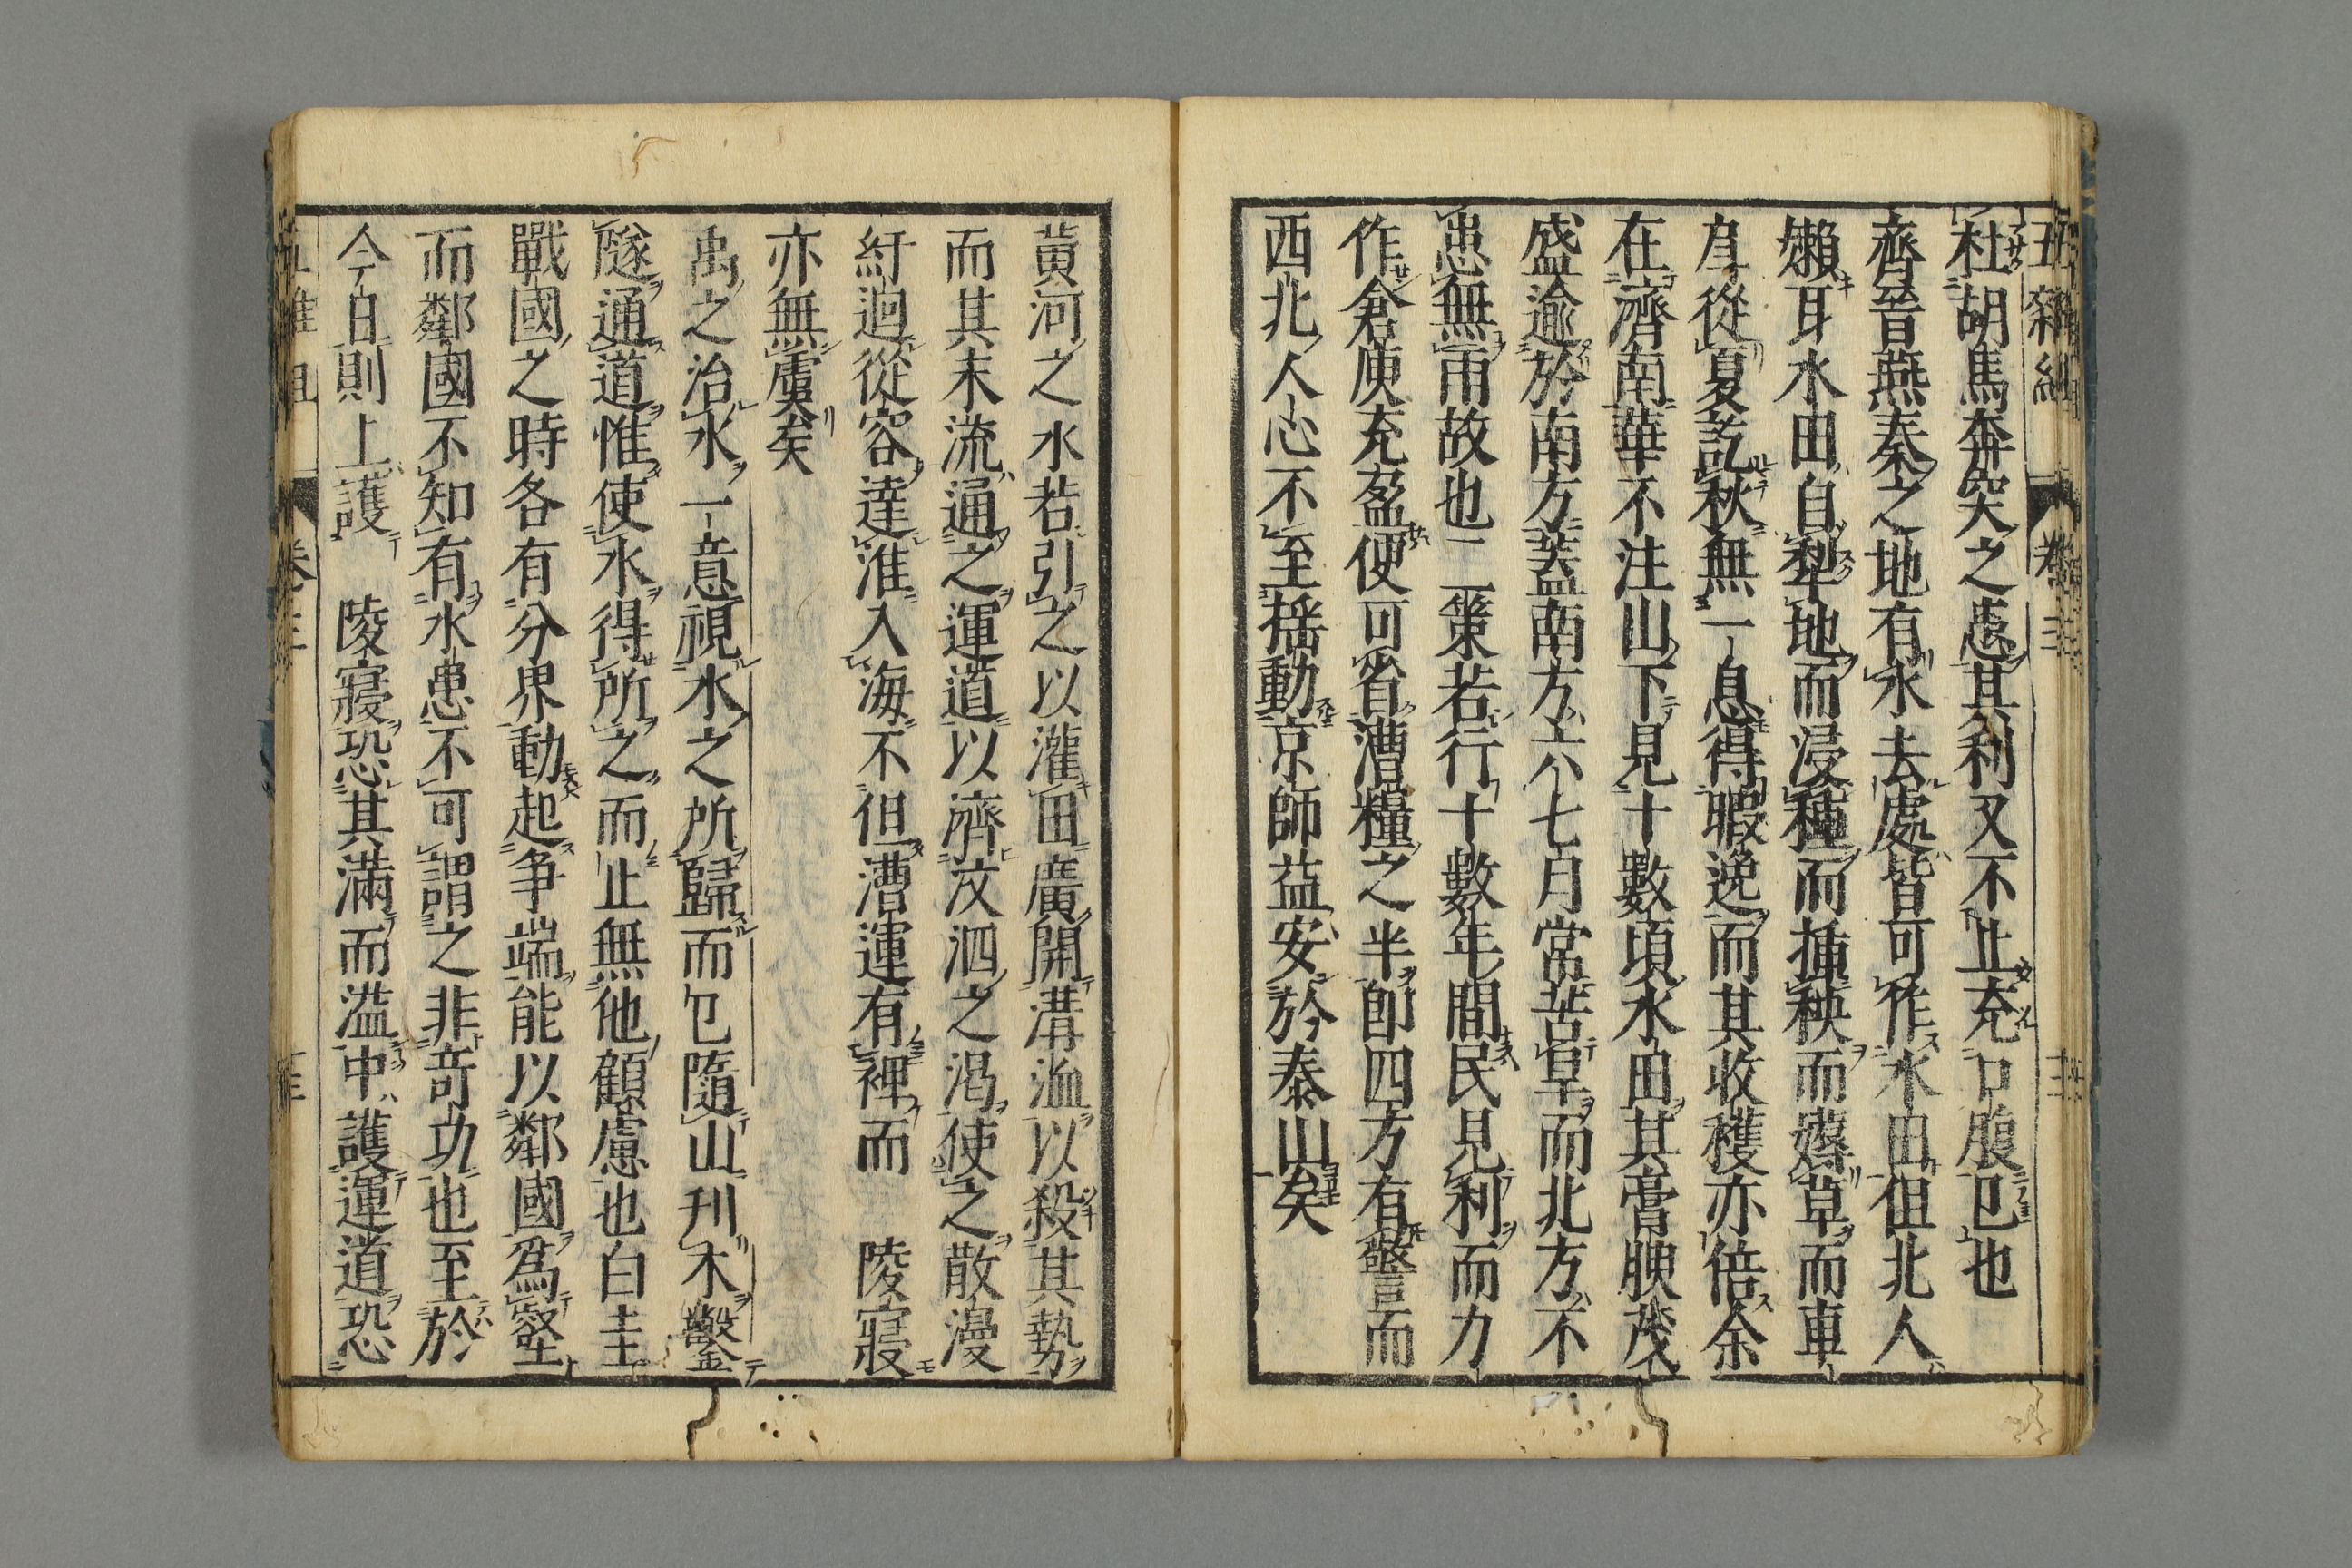 五雜組 卷三
杜胡馬奔突之患其利又不止充口腹已也
齊晉燕秦之地有水去處皆可作水田但北人
懶耳水田自犁地而浸種而揷秧而薅草而車
戽從夏訖秋無一息得暇逸而其收穫亦倍余
在濟南華不注山下見十數頃水田其膏腴茂
盛逾於南方蓋南方六七月常苦旱而北方不
患無雨故也二策若行十數年間民見利而力
作倉庾充盈便可省漕糧之半即四方有警而
西北人心不至揺動京師益安於泰山矣
黄河之水若引之以灌田廣開溝洫以殺其勢
而其末流通之運道以濟汶泗之渴使之散漫
紆迴從容達淮入海不但漕運有裨而 陵寢
亦無虞矣
禹之治水一意視水之所歸而已隨山刋木鑿
隧通道惟使水得所之而止無他顧慮也白圭
戰國之時各有分界動起争端能以鄰國爲壑
而鄰國不知有水患不可謂之非竒功也至於
今日則上護 陵寢恐其滿而溢中護運道恐
卷三